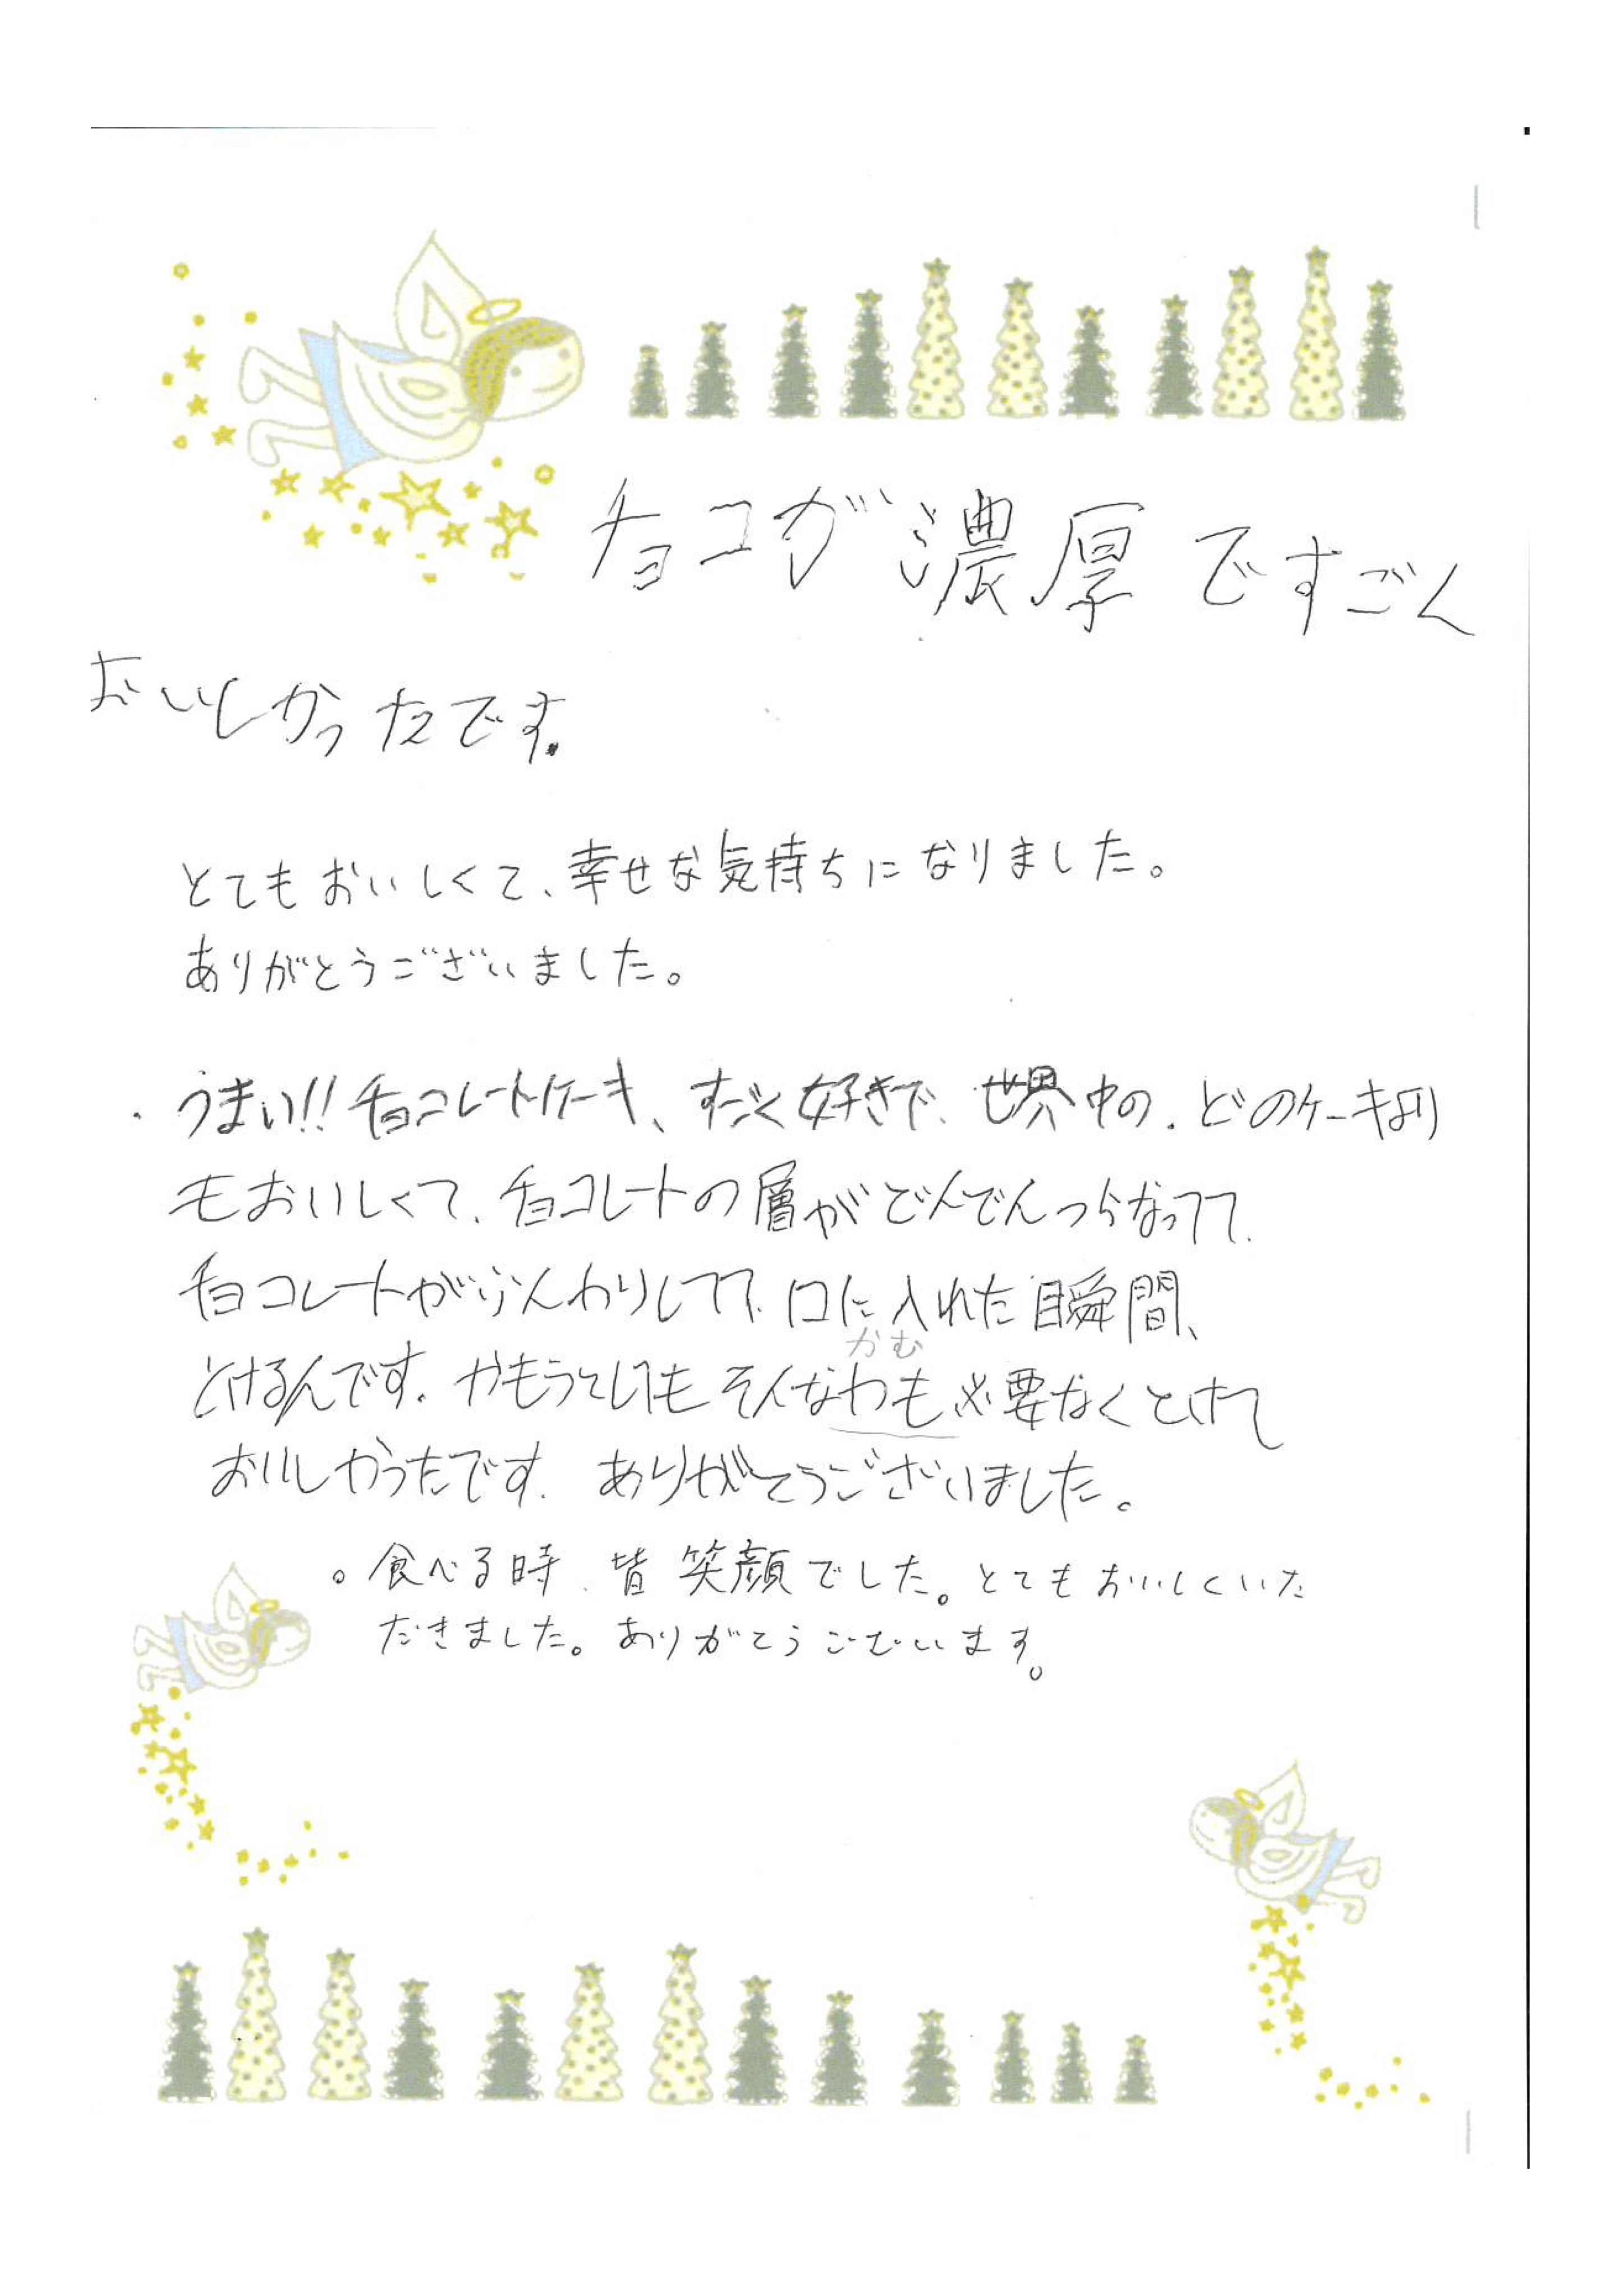 チョコが濃厚ですごく
おいしかったです。
とてもおいしくて、幸せな気持ちになりました。
ありがとうございました。
・うまい!!チョコレートケーキ、すごく好きで、世界中の、どのケーキより
もおいしくて、チョコレートの層がどんでんつらなってて、
チョコレートがふんわりしてて、口に入れた瞬間、
とけるんです。かもうとしても そんなかも必要なくとけて
かむ
おいしかったです。ありがとうございました。
。食べる時、皆笑顔でした。とてもおいしくいた
だきました。ありがとうございます。